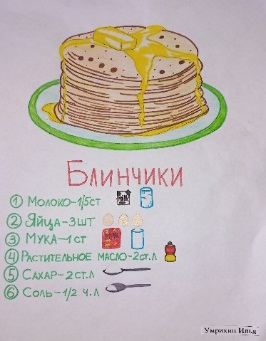 Блинчики
① Молоко-1,5ст
② Яйца-3шт
③ Мука-1ст
④ Растительное масло-2ст.л
⑤ Сахар-2ст.л
⑥ Соль-1/2 ч.л
Умрихин Илья